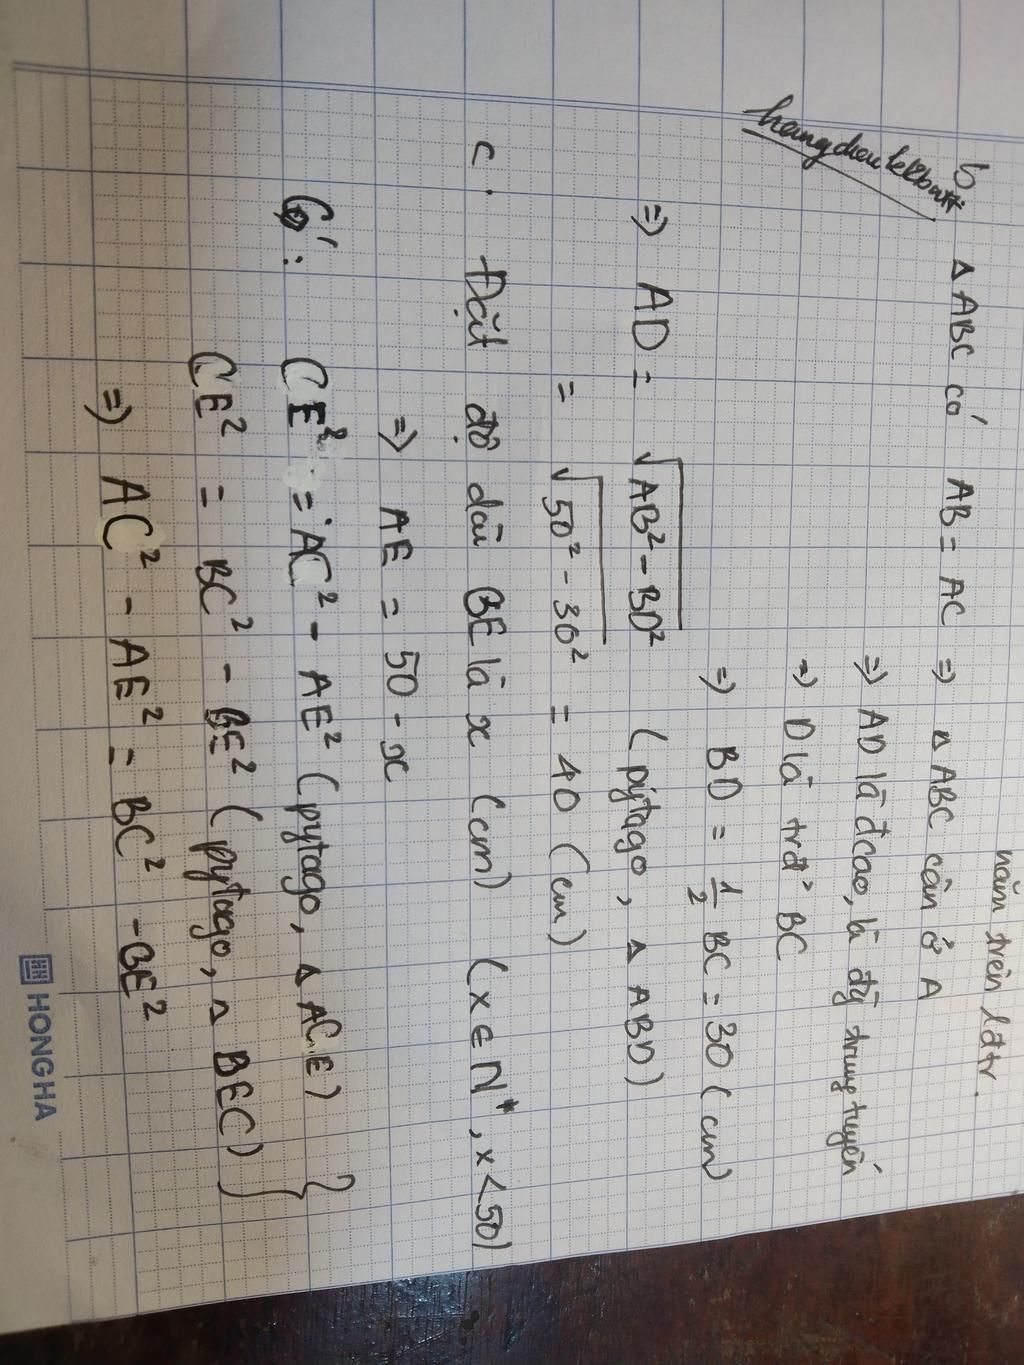 nằm trên 1 đtr.
b △ ABC có AB = AC ⇒ △ ABC cân ở A
hangdieukelbatt
⇒ AD là đcao, là đg trung tuyến
⇒ D là trđ² BC
⇒ BD = 1/2 BC = 30 (cm)
⇒ AD = √AB² - BD² (pytago, △ ABD)
= √50² - 30² = 40 (cm)
c. Đặt độ dài BE là x (cm) (x ∈ N*, x < 50)
⇒ AE = 50 - x
Có: CE² = AC² - AE² (pytago, △ ACE)
CE² = BC² - BE² (pytago, △ BEC)
⇒ AC² - AE² = BC² - BE²
HONGHA